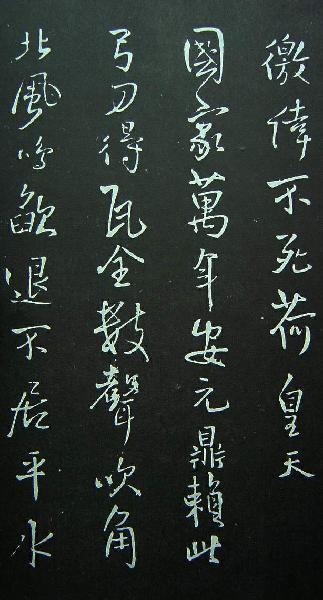 徼倖不死荷皇天
國家萬年安元鼎賴此
弓刀得瓦全數聲吹角
北風鳴飲退不居平水